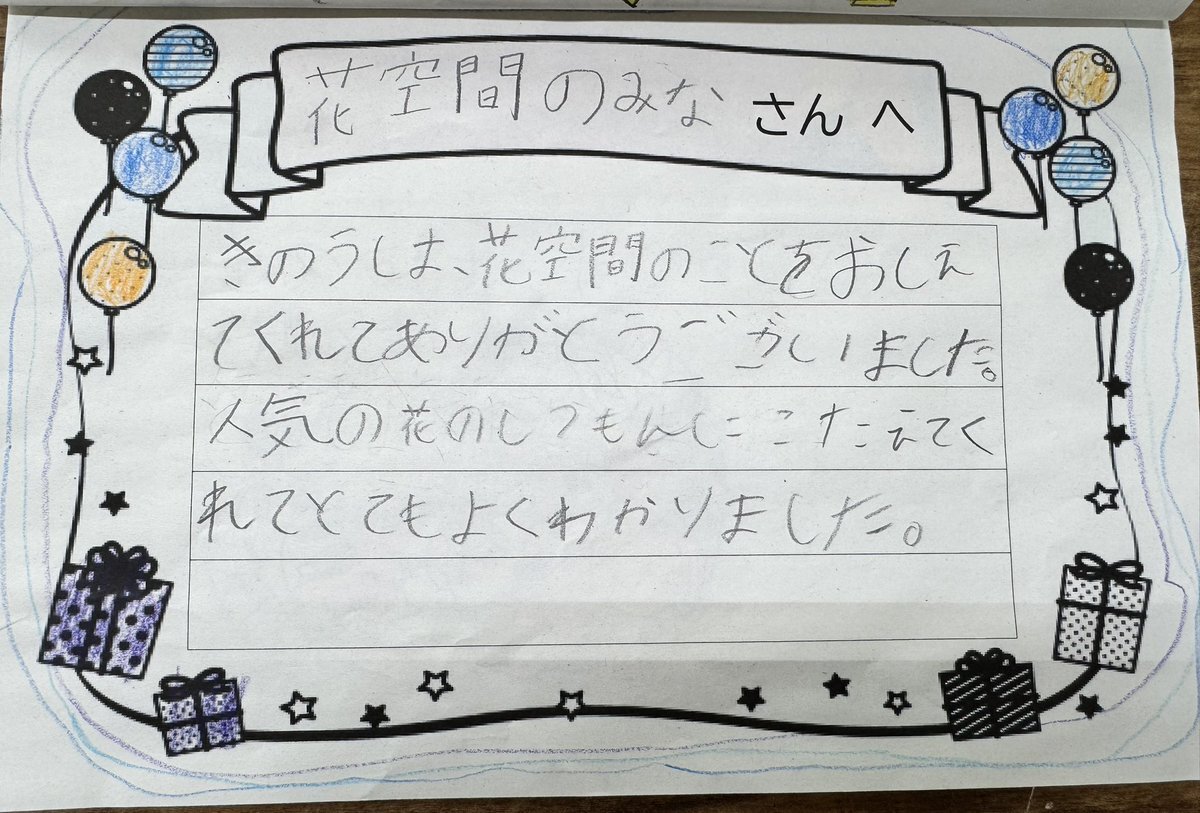 花空間のみなさんへ
きのうしは、花空間のことをおしえ
てくれてありがとうございました。
人気の花のしつもんにこたえてく
れてとてもよくわかりました。